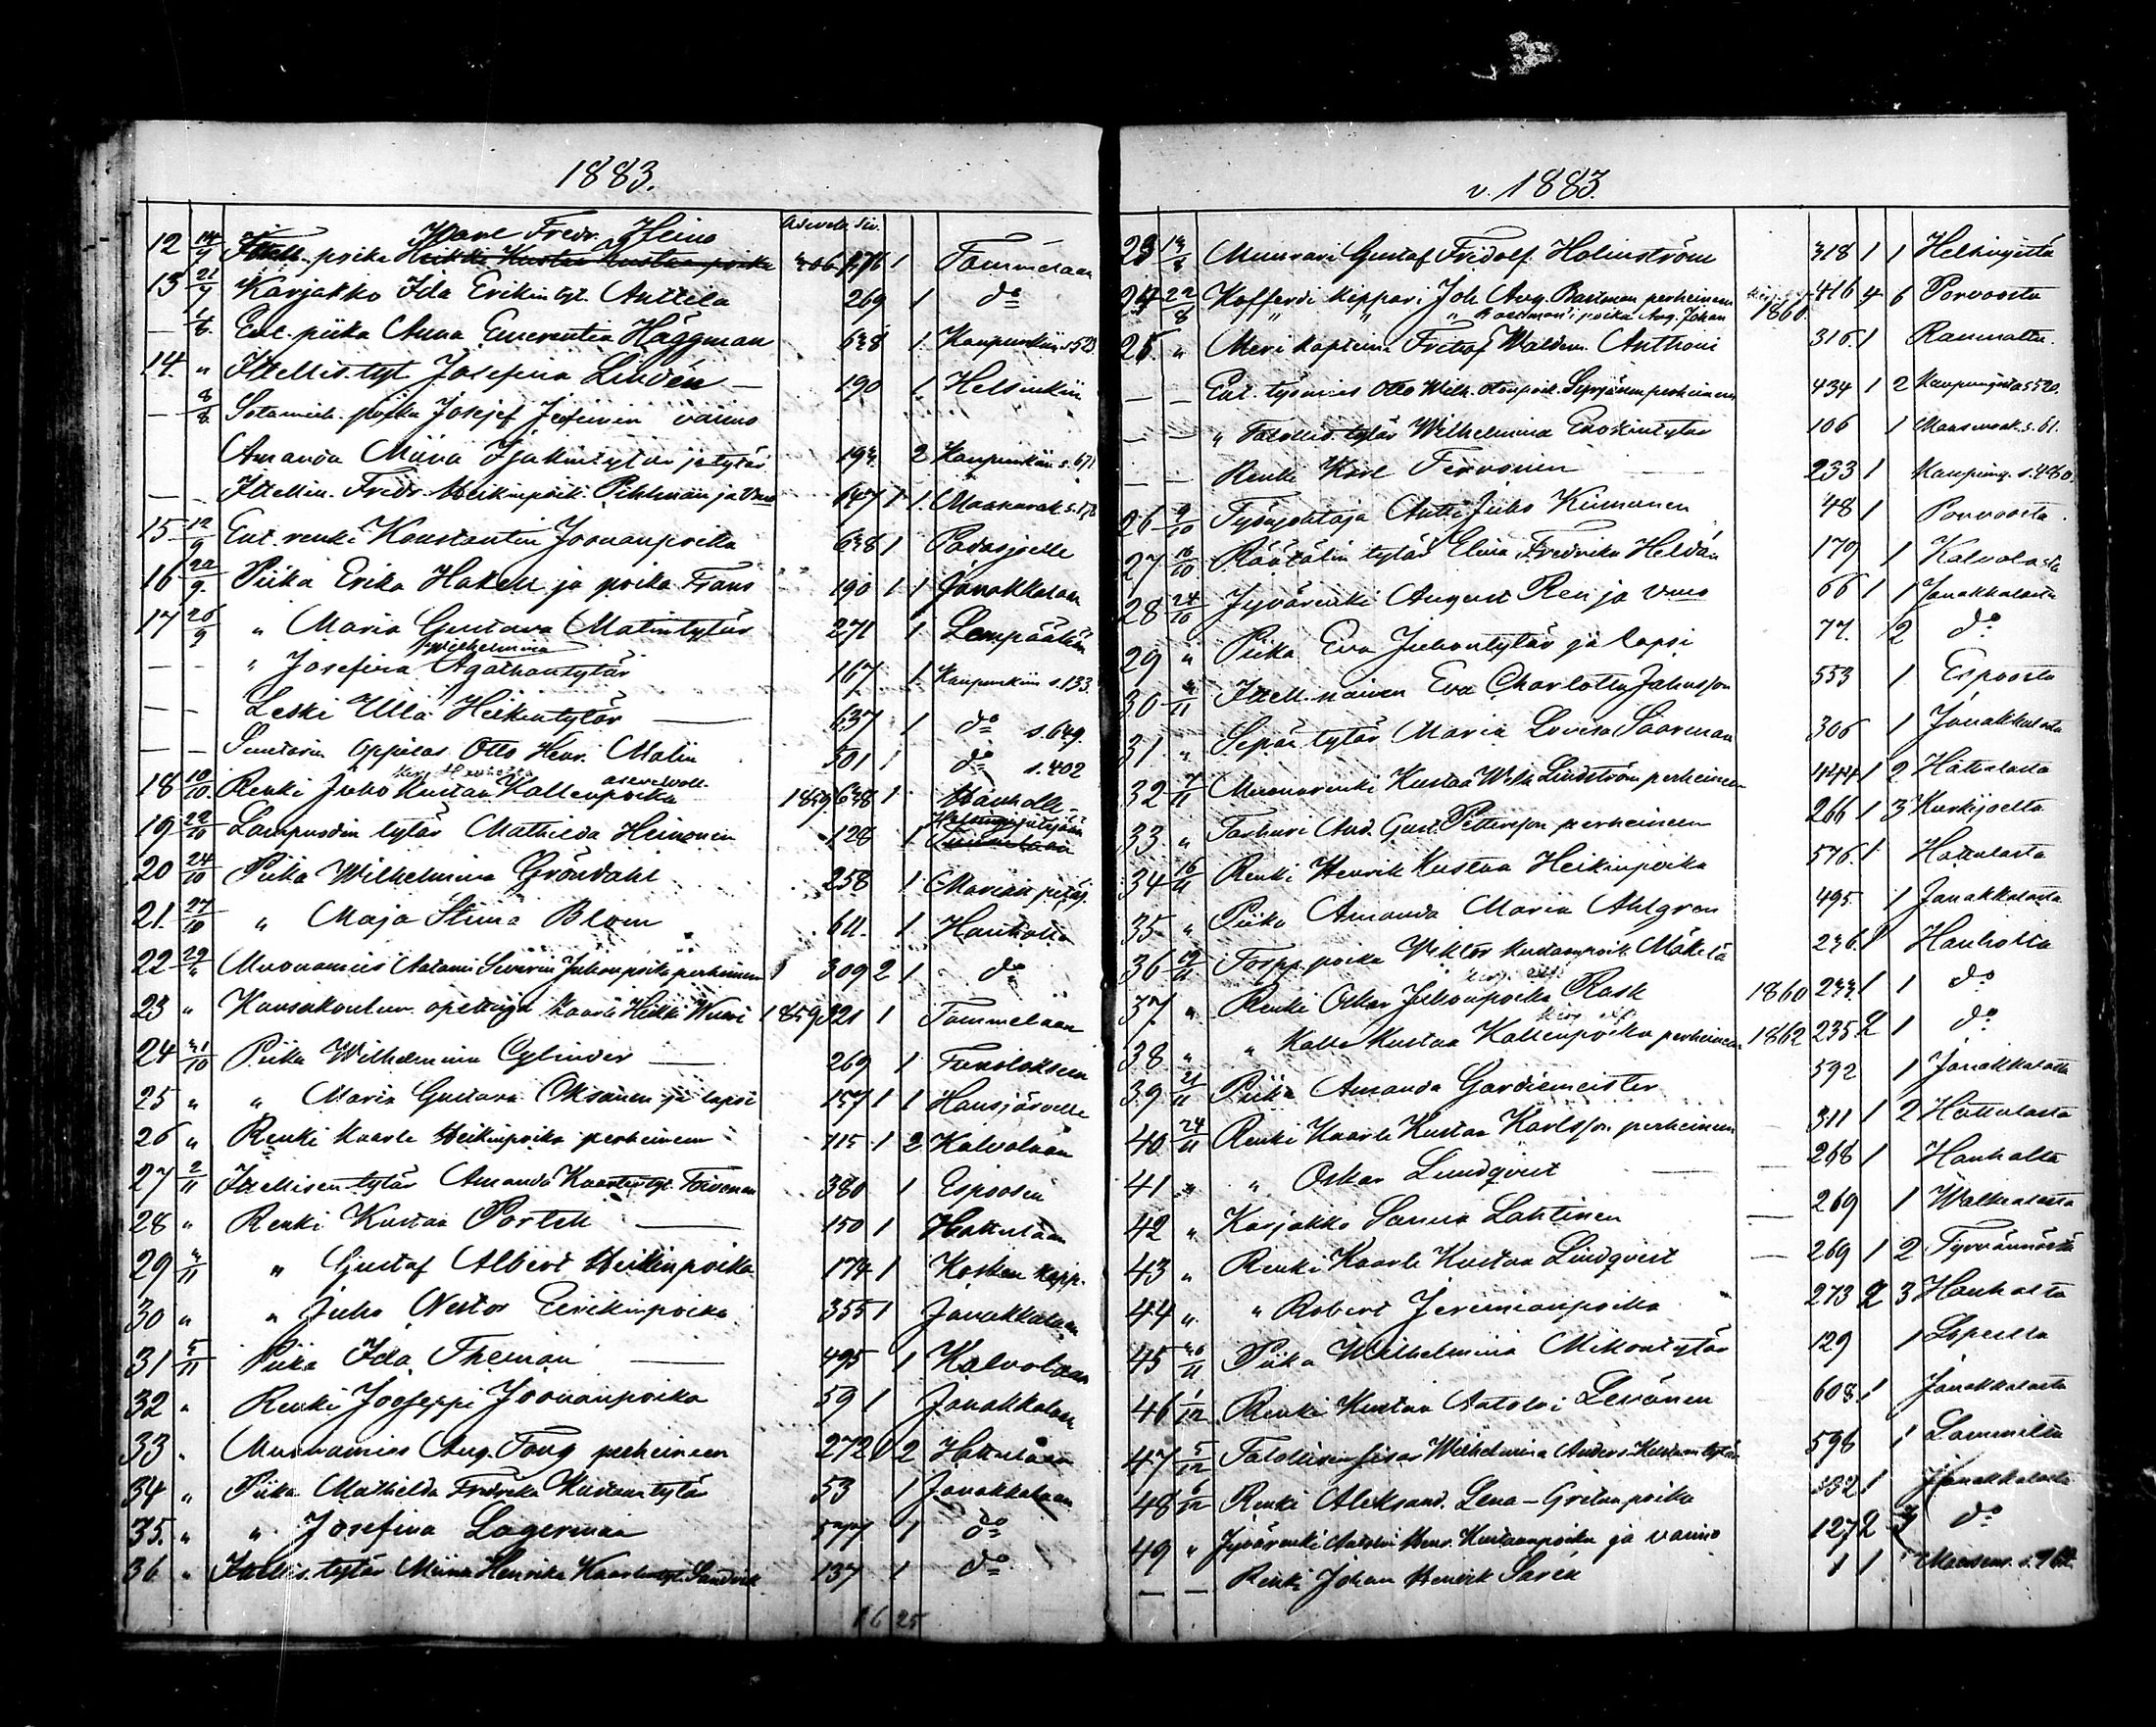 1883.
Asevelv. Siv.
Fredr. Heino
12 Itsell. poika Heikki Kustaa Kustaanpoika 306 1 Tammelaan
13 21/7 Karjakko Ida Erikintyt. Anttila 269 1 do
— Ent. piika Anna Emerentia Häggman 638 1 Kaupunkiin s 523
14. " Itsellis. tyt. Josefina Lindén — 190 1 Helsinkiin
— 8/8 Sotamieh. poika Josef vaimo
Amanda Miina tytär ja tytär 193. 2 Kaupunkiin s. 671
— — Itsellin. Fredr. Heikinpoik. Pihlman ja vmo 647 1 1. Maaseurak.
15 12/9 Ent. renki Konstantin Joonanpoika 638 1 Padasjoelle
16 22/9. Piika Erika Hakell ja poika Frans 190 1 1 Janakkalaan
17 26/9 " Maria Gustava Matintytär 271 1 Lempäälään
Wilhelmina
— — " Josefina Agathantytär 167 1 Kaupunkiin s. 133.
— — Leski Ulla Heikintytär — 637 1 do s. 649.
— — Suutarin oppilas Otto Henr. Malin 501 1 do s. 402
18 10/10. Renki Juho Kustaa Kallenpoika asevelvoll. 1859 638 1 Hauholle
19 22/10 Lampuodin tytär Mathilda Heinonen 128 1
20 24/10 Piika Wilhelmina Gröndahl 258 1 Marian pitäj.
21. 27/10 " Maja Stiina Blom 64. 1 Hauholle
22 29/10 Muonamies Aatami Severin Juhonpoika perheineen 309 2 1 do
23 " Kansakoulun opettaja Kaarle Heikki Wuori 1859 321 1 Tammelaan
24 31/10 Piika Wilhelmina Cylinder — 269 1 Tuulokseen
25 " " Maria Gustava Oksanen ja lapsi 157 1 1 Hausjärvelle
26 " Renki Kaarle Heikinpoika perheineen 115 1 2 Kalvolaan
27 2/11 Itsellisen tytär Amanda Kaarlentyt. Toivonen 380 1 Espoosen
28 " Renki Kustaa Portell — 150 1 Hattulaan
29 3/11 " Gustaf Albert Heikinpoika 174 1 Kosken kapp.
30 " " Juho Nestor Eerikinpoika 355 1 Janakkalaan
31 5/11 Piika Ida Theman — 495 1 Kalvolaan
32 " Renki Jooseppi Joonanpoika 59 1 Janakkalaan
33 " Muonamies Aug. Tong perheineen 272 1 2 Hattulaan
34 " Piika Mathilda Fredrika Kustaantytär 53 1 Janakkalaan
35. " " Josefina Lagerman 577 1 do
36 " Itsellis. tytär Miina Henrika Kaarlentyt. Sandvik 137 1 do
16 25
v. 1883.
23 13/8 Muurari Gustaf Fridolf Holmström 318 1 1 Helsingistä
24 22/8 Kofferdi kippari Joh. Aug. Bastman perheineen 416 4 6 Porvoosta
" " " Bastman'i poika Aug. Johan 1860.
25 " Meri kapteeni Frithof Waldem. Anthoni 316. 1 Raumalta
— — Ent. työmies Otto Wilh. Otonpoik. Syrjänen perheineen 434 1 2 Kaupungista s 520.
— — " Talollis. tytär Wilhelmina Enokintytär 106 1 Maaseurak. s. 61.
— — Renki Karl Tervonen — 233 1 Kaupung. s. 480.
26 9/10 Työnjohtaja Antti Juho Kiimanen 48 1 Porvoosta.
27 16/10. Räätälin tytär Elina Fredrika Heldán 179 1 Kalvolasta
28 24/10 Jyvärenki August Ren ja vmo 66 1 1 Janakkalasta
29 " Piika Eva Juhontytär ja lapsi 77. 2 do
30 /11 Itsell. nainen Eva Charlotta Johnsson 553 1 Espoosta
31 " Sepän tytär Maria Lovisa Saarman 306 1 Janakkalasta
32 7/11 Muonarenki Kustaa Wilh. Lindström perheineen 444 1 2 Hattulasta
33 " Torpari And. Gust. Pettersson perheineen 266 1 3 Kurkijoelta
34 16/11 Renki Henrik Kustaa Heikinpoika 576. 1 Hattulasta
35 " Piika Amanda Maria Ahlgren 495. 1 Janakkalasta
36 19/11 Torpp. poika Wiktor Kustaanpoik. Mäkelä 236. 1 Hauholta
37 " Renki Oskar Juhonpoika Rask 1860 233. 1 1 do
38 " " Kalle Kustaa Kallenpoika perheineen 1862 235. 2 1 do
39 21/11 Piika Amanda Gardiemeister 592 1 Janakkalasta
40 24/11 Renki Kaarle Kustaa Karlsson perheineen 311 1 2 Hattulasta
41 " " Oskar Lundqvist — 268 1 Hauholta
42 " Karjakko Sanna Lahtinen — 269 1 Walkealasta
43 " Renki Kaarle Kustaa Lindqvist — 269 1 2 Tyrvännöstä
44 " " Robert Jeremianpoika 273 2 3 Hauholta
45 26/11 Piika Wilhelmina Mikontytär 129 1 Lopelta
46 1/12 Renki Kustaa Aatolvi Levänen 608. 1 Janakkalasta
47 5/12 Talollisen sisar Wilhelmina Anders Kustaantytär 598 1 Lammilta
48 6/12 Renki Aleksand. Lena-Gretanpoika 332 1 Janakkalasta
49 " Jyvärenki Aatolvi Henr. Kustaanpoika ja vaimo 127 2 do
— — Renki Johan Henrik Sarén 1 1 Maaseur.